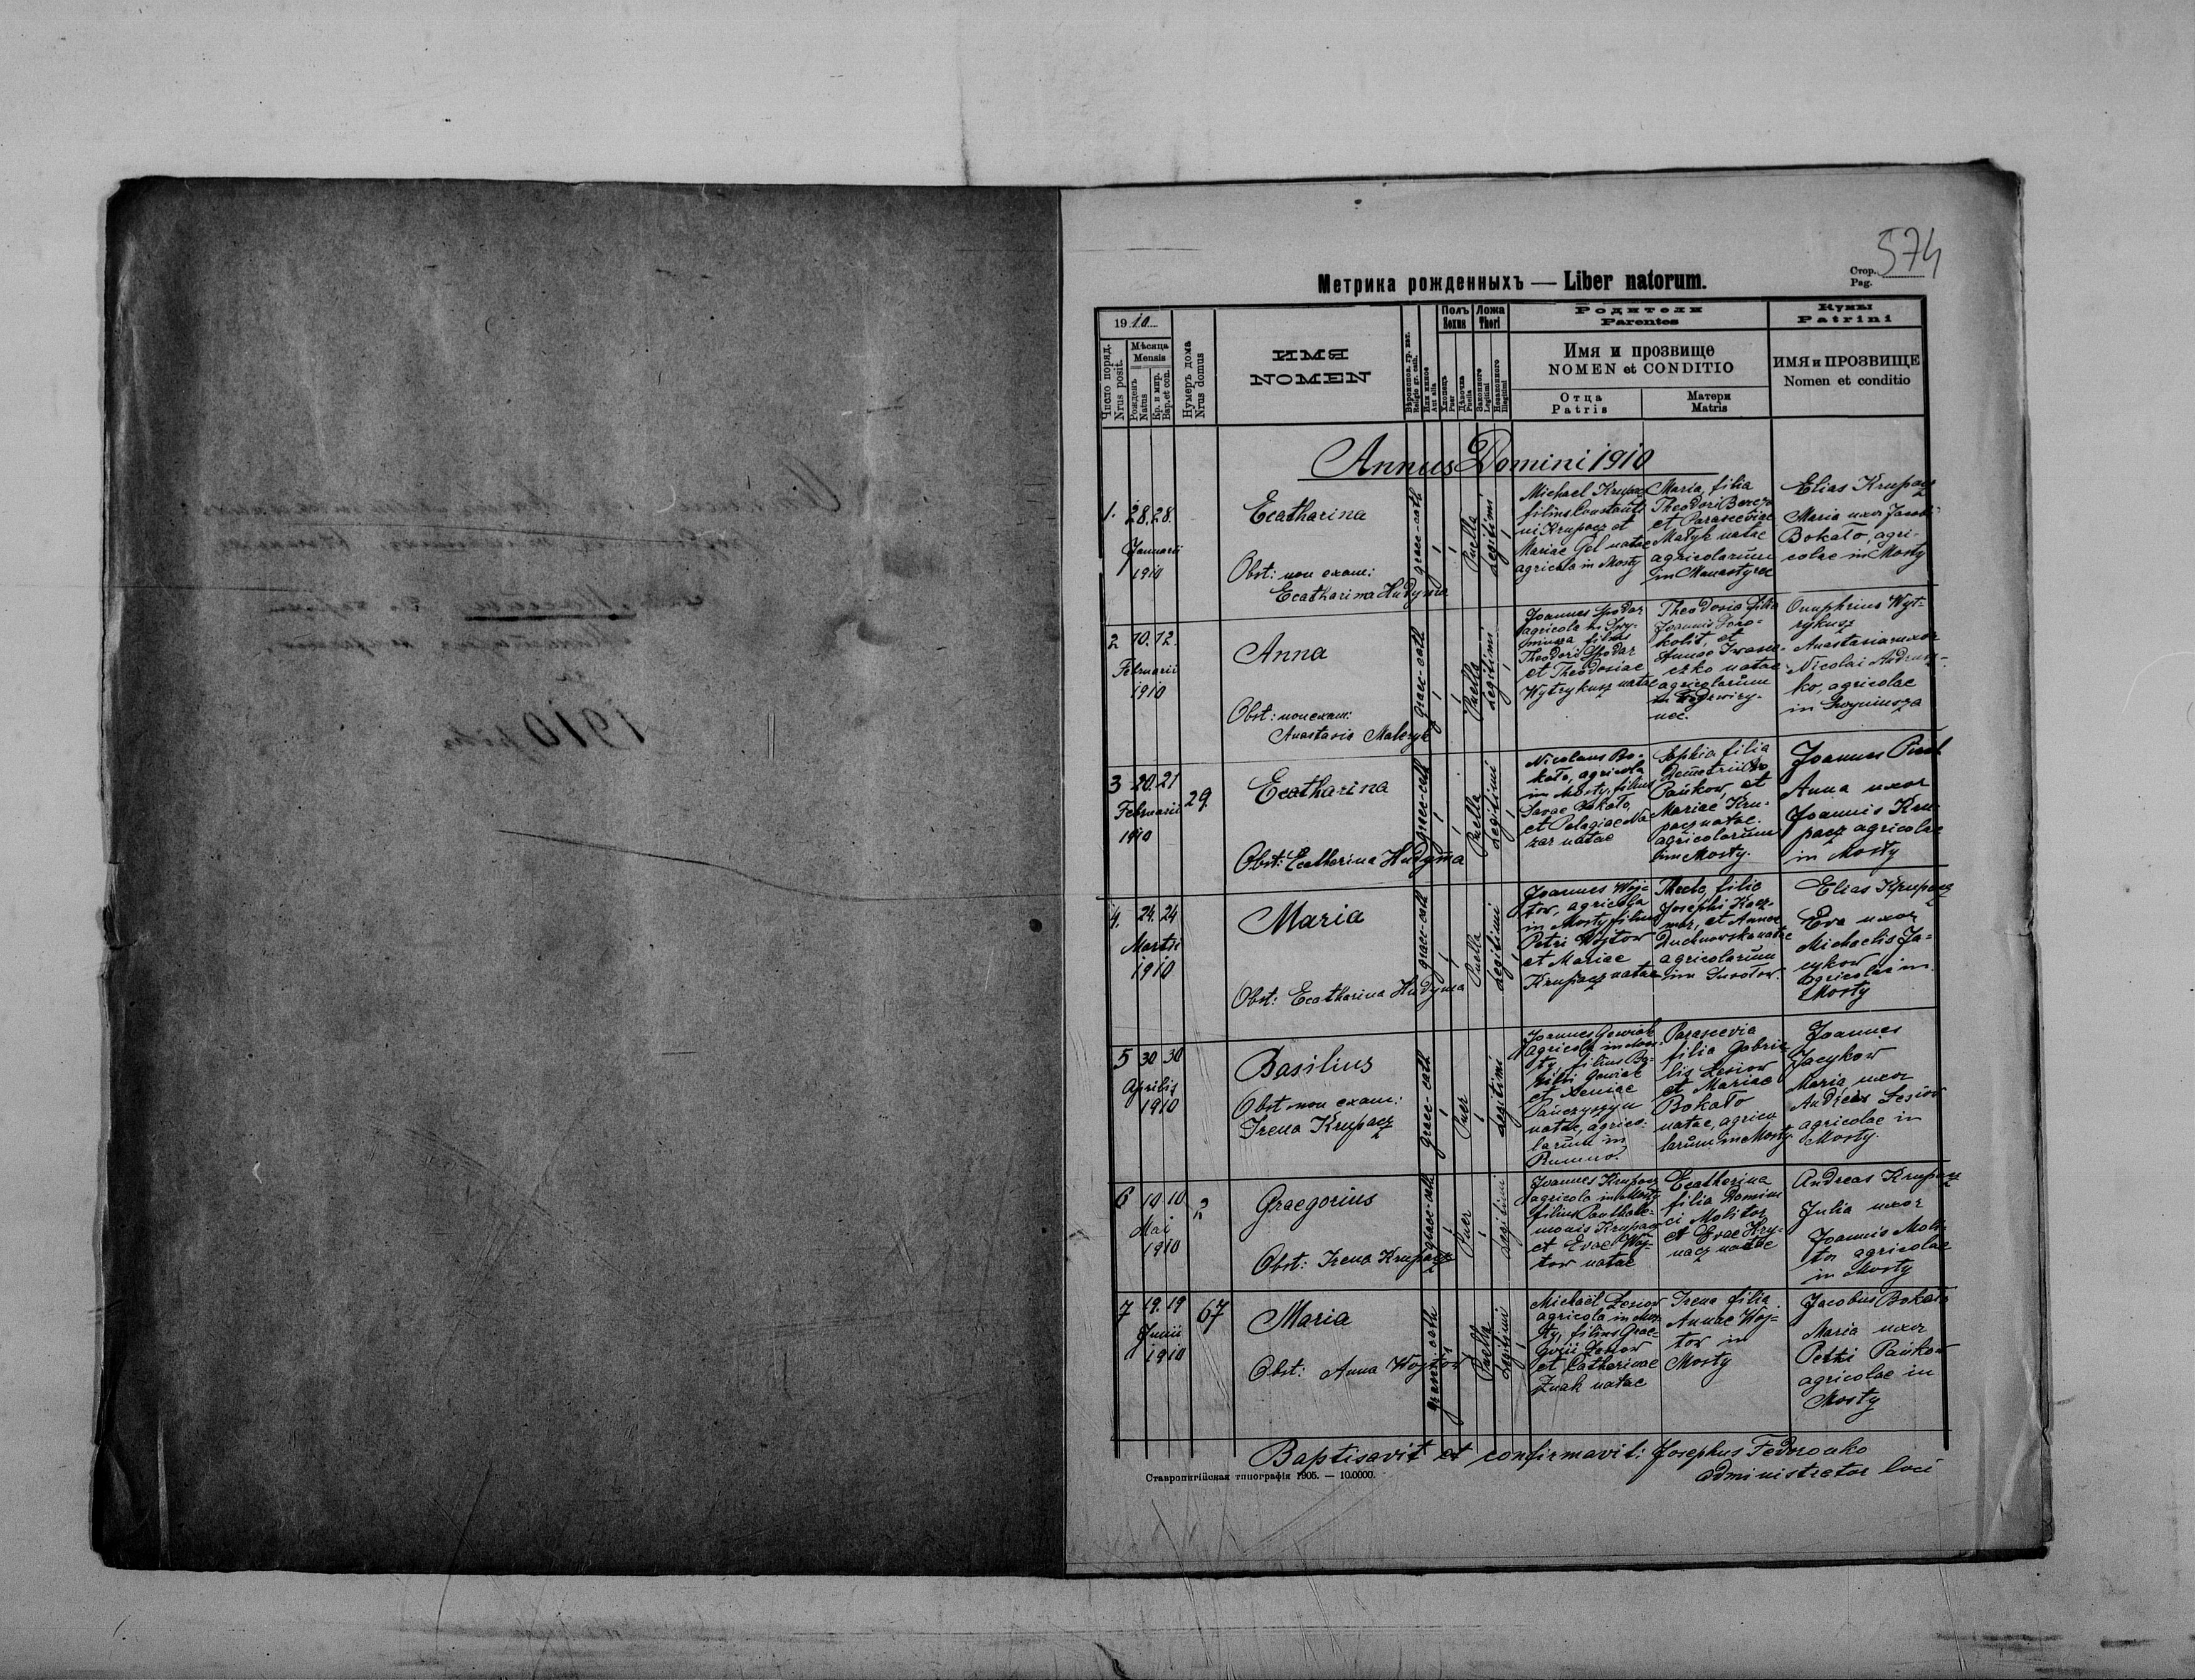 574
Стор.
Pag.
Метрика рожденныхъ — Liber natorum.
1910
Число поряд.
Nrus posit.
Мѣсяца
Mensis
Рожденъ
Natus
Кр. и мир.
Bap. et con.
Нумеръ дома
Nrus domus
ИМЯ
NOMEN
Полъ
Sexus
Ложа
Thori
Хлопецъ
Puer
Дѣвочка
Puella
Законного
Legitimi
Незаконного
Illegitimi
Родители
Parentes
Имя и прозвище
NOMEN et CONDITIO
Отца
Patris
Матери
Matris
Кумы
Patrini
ИМЯ и ПРОЗВИЩЕ
Nomen et conditio
Annus Domini 1910
1. 28. 28.
Januarii
1910
Ecatharina
Obst: non exam:
Ecatharina Hudyma
graec-cath
Puella
Legitimi
Michael Krupacz
filius Constanti
ni Krupacz et
Mariae Gel natae
agricola in Mosty
Maria, filia
Theodori Bereza
et Parasceviae
Matyk natae
agricolarum
in Manastyrec
Elias Krupacz
Maria uxor Jacobi
Bokało, agri-
colae in Mosty
2 10. 12.
Februarii
1910
Anna
Obst: non exam:
Anastasia Malczyk
graec-cath
Puella
Legitimi
Joannes Spodar
agricola in
filius
Theodori Spodar
et Theodosiae
Wytrykusz natae
Theodosia filia
Joannis
et
Annae
natae
agricolarum
Onuphrius Wyt-
rykusz
Anastasia uxor
Nicolai Andrusz-
ko, agricolae
in
3 20. 21
Februarii
1910
29.
Ecatharina
Obst: Ecatharina Hudyma
graec-cath
Puella
Legitimi
Nicolaus Bo-
kało, agricola
in Mosty, filius
Savae Bokało,
et Pelagiae Na
zar natae
Sophia filia
Demetrii
Pańkow, et
Mariae Kru-
pacz natae.
agricolarum
in Mosty.
Joannes
Anna uxor
Joannis Kru-
pacz agricolae
in Mosty
4. 24. 24
Martii
1910
Maria
Obst: Ecatharina Hudyma
graec-cath
Puella
Legitimi
Joannes Woj-
tow, agricola
in Mosty, filius
Petri Wojtow
et Mariae
Krupacz natae
Thecla, filia
Josephi Kacz-
mar, et Annae
natae
agricolarum
in
Elias Krupacz
Eva uxor
Michaelis Ja-
cykow
agricolae in
Mosty
5 30 30
Aprilis
1910
Basilius
Obst non exam:
Irena Krupacz
graec-cath
Puer
Legitimi
Joannes
agricola in Mos-
ty, filius Ba-
silii
et Xeniae
Pańczyszyn
natae, agrico-
larum in
Rumno.
Parascevia
filia Gabrie
lis Lesiow
et Mariae
Bokało
natae, agrico
larum in Mosty.
Joannes
Jacykow
Maria uxor
Andreae Lesiow
agricolae in
Mosty.
6 10 10
Mai
1910
2
Graegorius
Obst: Irena Krupacz
graec-cath
Puer
Legitimi
Joannes Krupacz
agricola in Mosty
filius Panthale-
monis Krupacz
et Evae Woj-
tow natae
Ecatharina
filia Domini
ci Molitor
et Evae Kry-
nacz natae
Andreas Krupacz
Julia uxor
Joannis Moli-
tor agricolae
in Mosty
7 19. 19
Junii
1910
67
Maria
Obst: Anna Wojtow
graec-cath
Puella
Legitimi
Michaël Lesiow
agricola in Mos-
ty, filius Grae-
gorii Lesiow
et Catharinae
Znak natae
Irena filia
Annae Woj-
tow in
Mosty
Jacobus Bokało
Maria uxor
Petri Pańkow
agricolae in
Mosty
Baptisavit et confirmavit: Josephus Fedoronko
administrator loci
Ставропигійская типографія 1905. — 10.0000.